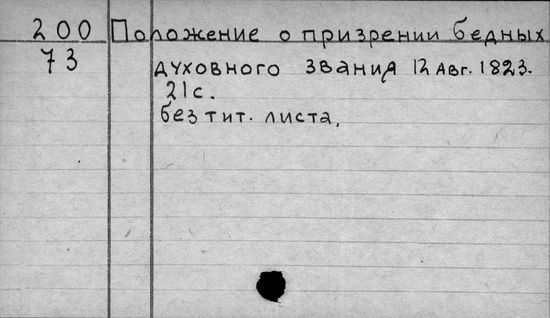 200 Положение о призрении бедных
73 духовного звания 12 Авг. 1823.
21 с.
без тит. листа.